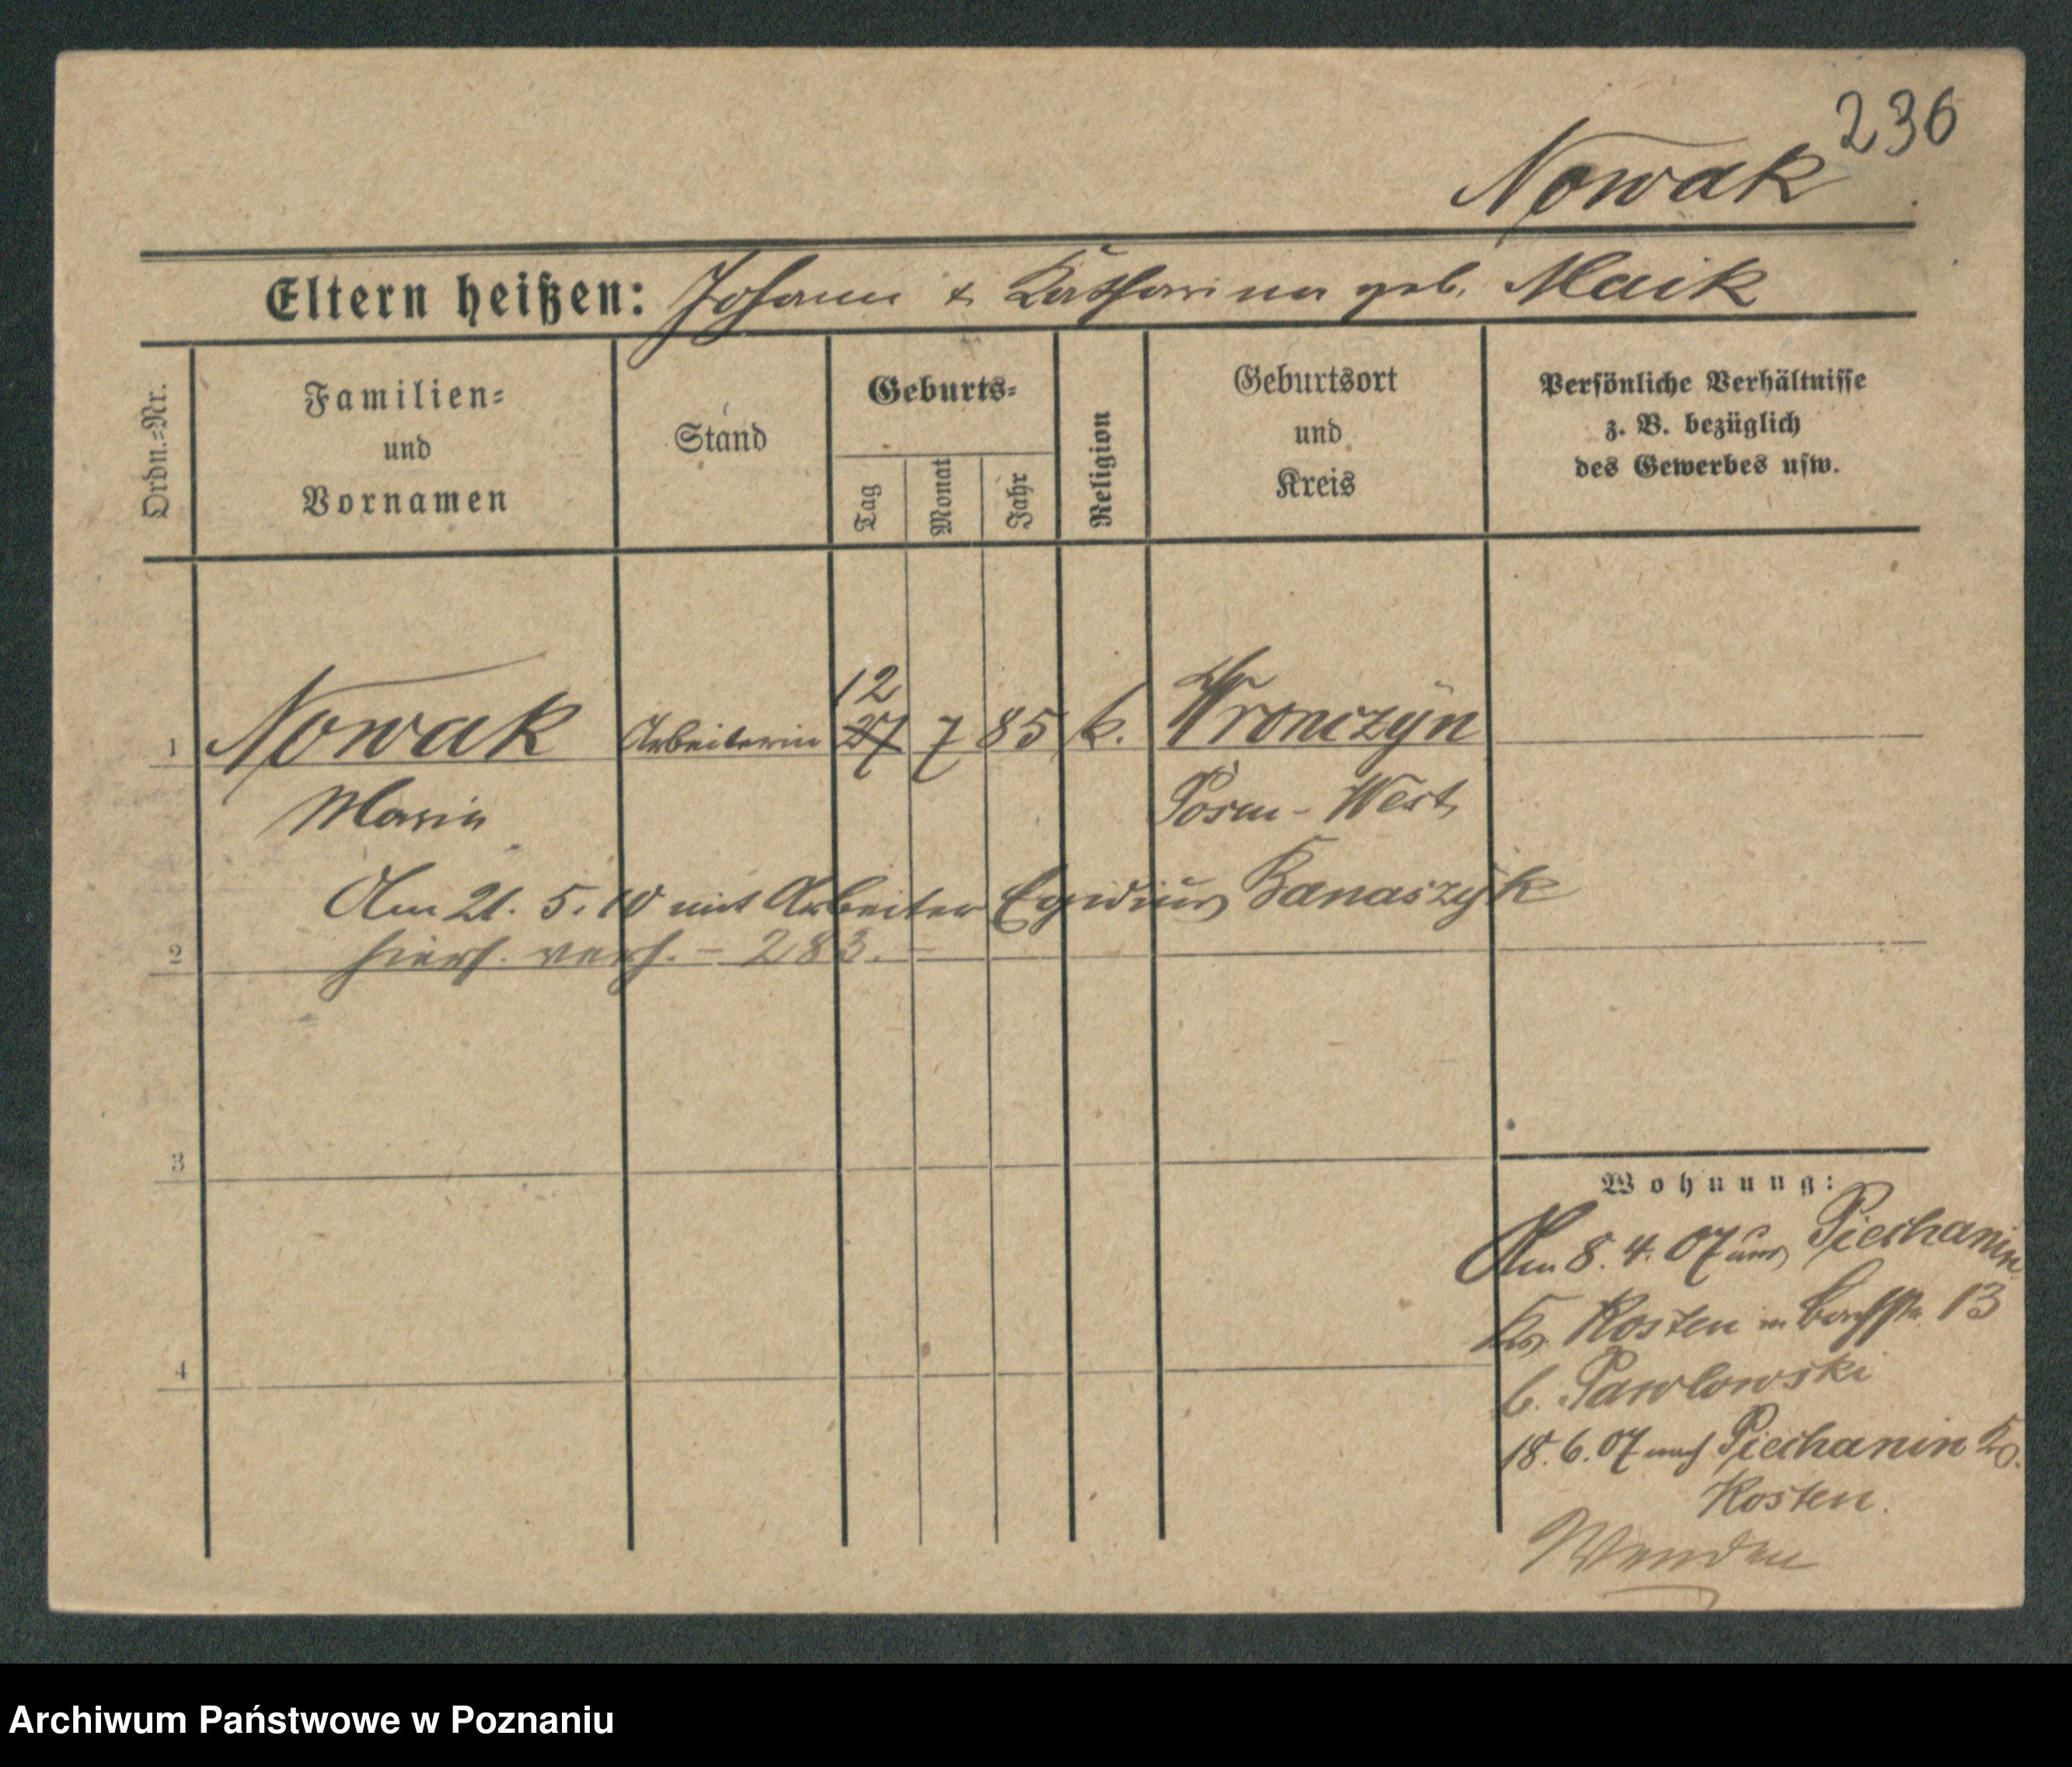 236
Nowak
Eltern heißen: Johann & Katharina geb. Maik
Ordn.=Nr.
Familien=
und
Vornamen
Stand
Geburts=
Tag
Monat
Jahr
Religion
Geburtsort
und
Kreis
Persönliche Verhältnisse
z. B. bezüglich
des Gewerbes usw.
12
1 Nowak Arbeiterin 27 7 85 k. Wronczyn
Maria Posen - West
Am 21. 5. 10 mit Arbeiter Egidius Banaszyk
2 hiers. verh. - 283. -
3
Wohnung:
Am 8. 4. 07 aus Piechanin
Krs. Kosten n. Bachstr. 13
4
b. Pawlowski
18. 6. 07 nach Piechanin Krs.
Kosten.
Wenden
Archiwum Państwowe w Poznaniu